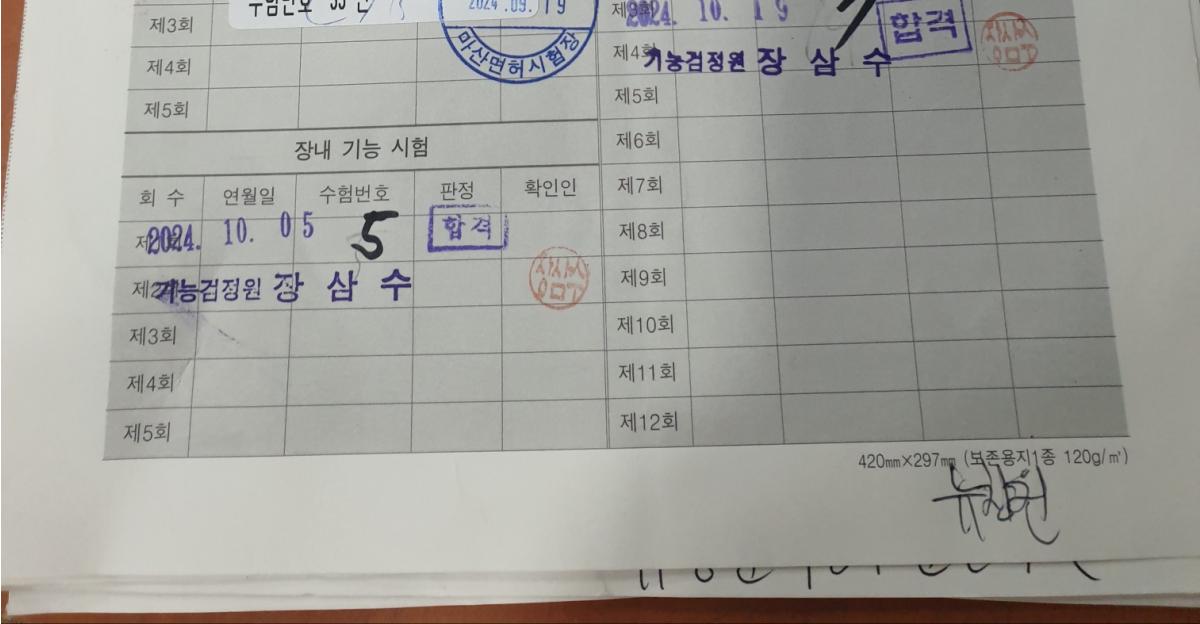 제3회
수험번호
2024.09.19
제4회
마산면허시험장
제5회
장내 기능 시험
회 수 연월일 수험번호 판정 확인인
2024. 10. 05 5 합격
제2회 기능검정원 장 삼 수
제3회
제4회
제5회
2024. 10. 19 합격
제4회 기능검정원 장 삼 수
제5회
제6회
제7회
제8회
제9회
제10회
제11회
제12회
420㎜×297㎜ (보존용지1종 120g/㎡)